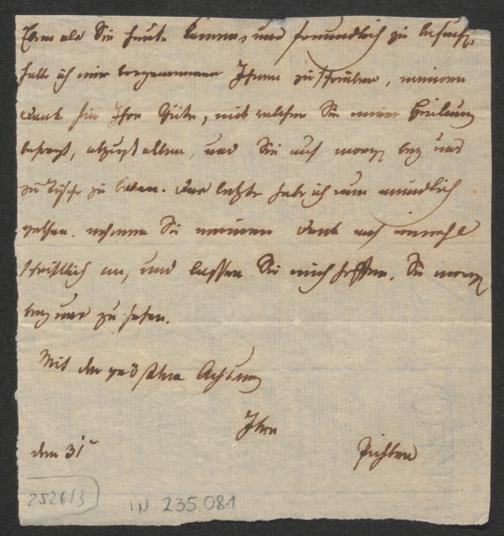 Eben als Sie heute kamen, uns freundlich zu besuchen,
hatte ich mir vorgenommen Ihnen zu schreiben, meinen
Dank für Ihre Güte, mit welcher Sie meine Heilung
besorgt, abzustatten, und Sie auf morgen bey uns
zu Tische zu bitten. Das letzte habe ich nun mündlich
gethan. nehmen Sie meinen Dank auch einmahl
schriftlich an, und lassen Sie mich hoffen, Sie morgen
bey uns zu sehen.
Mit der größten Achtung
Ihre
den 31t Pichler
2526/3 IN 235.081